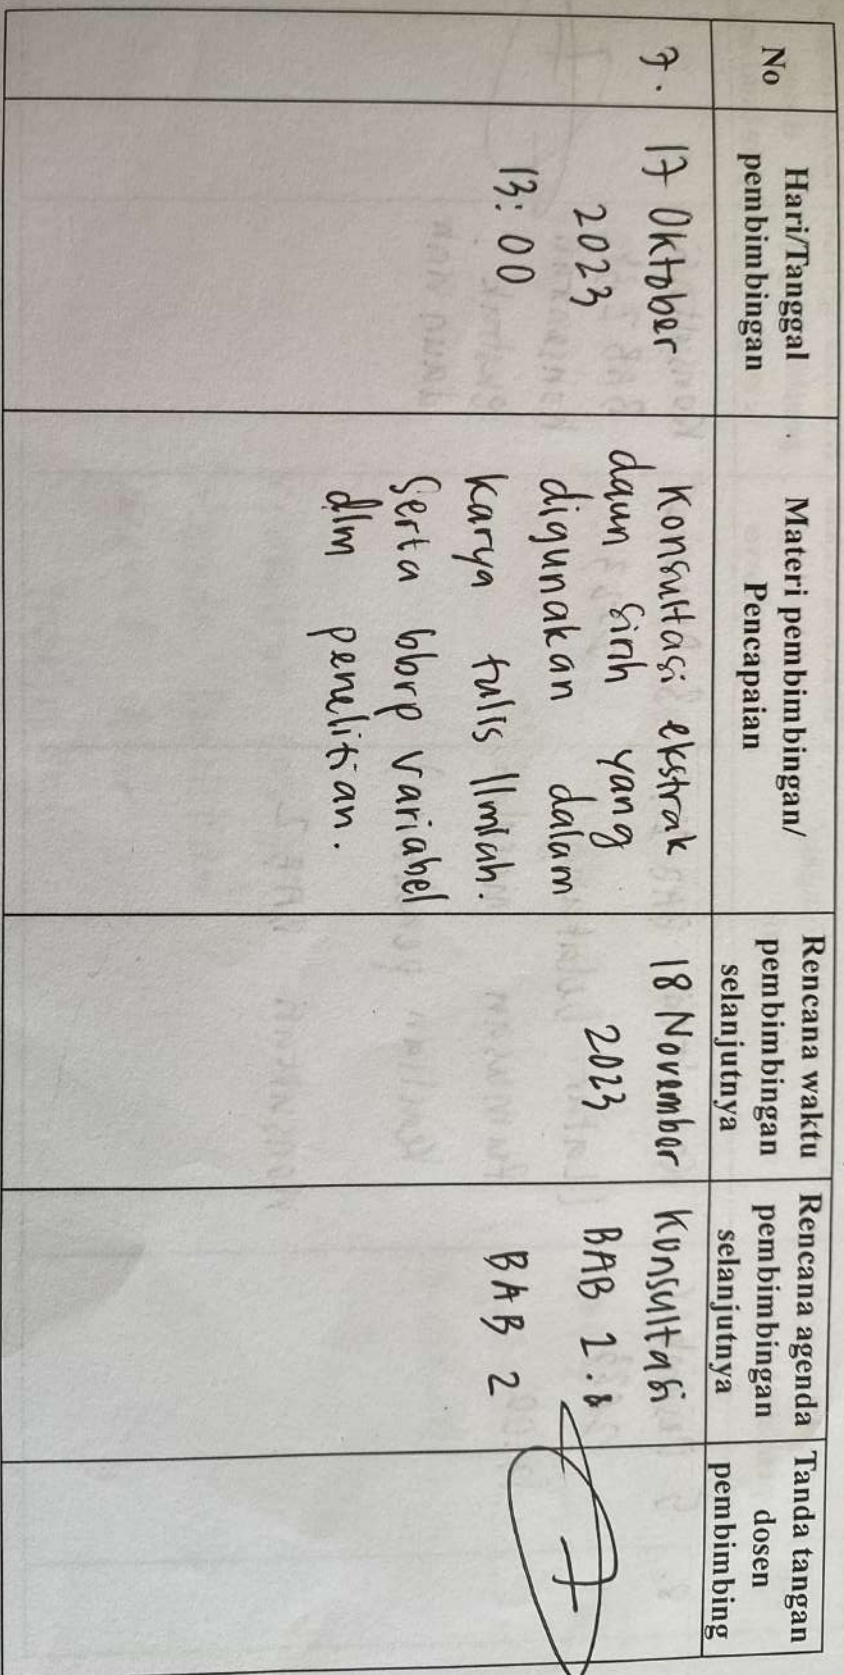 No
Hari/Tanggal
pembimbingan
Materi pembimbingan/
Pencapaian
Rencana waktu
pembimbingan
selanjutnya
Rencana agenda
pembimbingan
selanjutnya
Tanda tangan
dosen
pembimbing
7.
17 Oktober
2023
13:00
Konsultasi ekstrak
daun sirih yang
digunakan dalam
karya tulis Ilmiah.
Serta bbrp variabel
dlm penelitian.
18 November
2023
Konsultasi
BAB
BAB 2